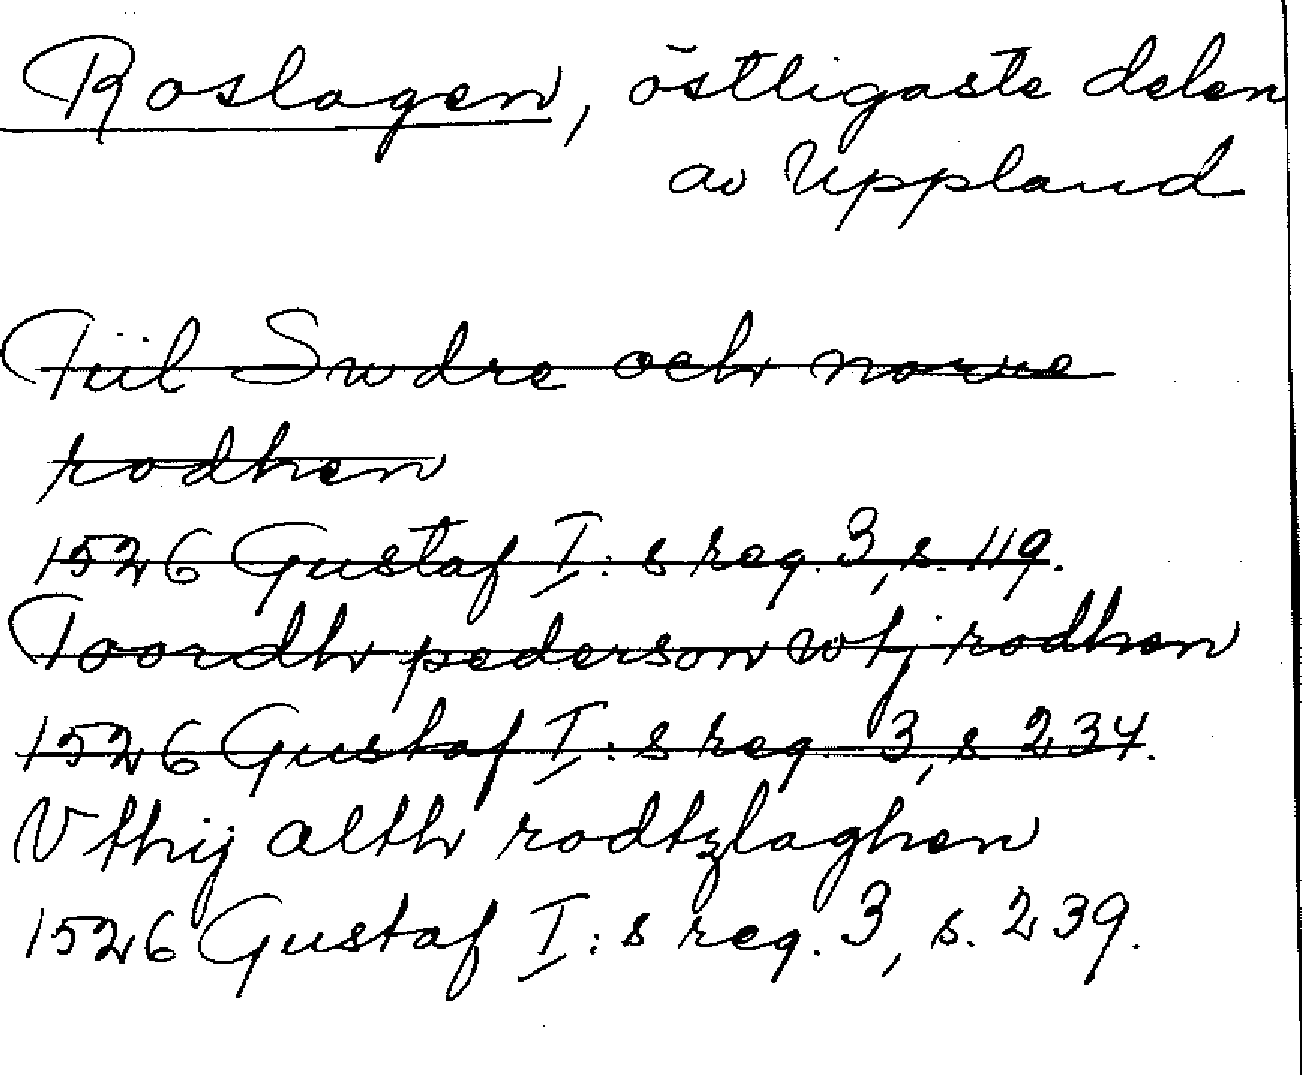 Roslagen, östligaste delen
av Uppland
Tiil Swdre och norre
rodhen
1526 Gustaf I:s reg. 3, s. 119.
Toordh pederson wtj rodhen
1526 Gustaf I:s reg. 3, s. 234.
Vthij alth rodtzlaghen
1526 Gustaf I:s reg. 3, s. 239.